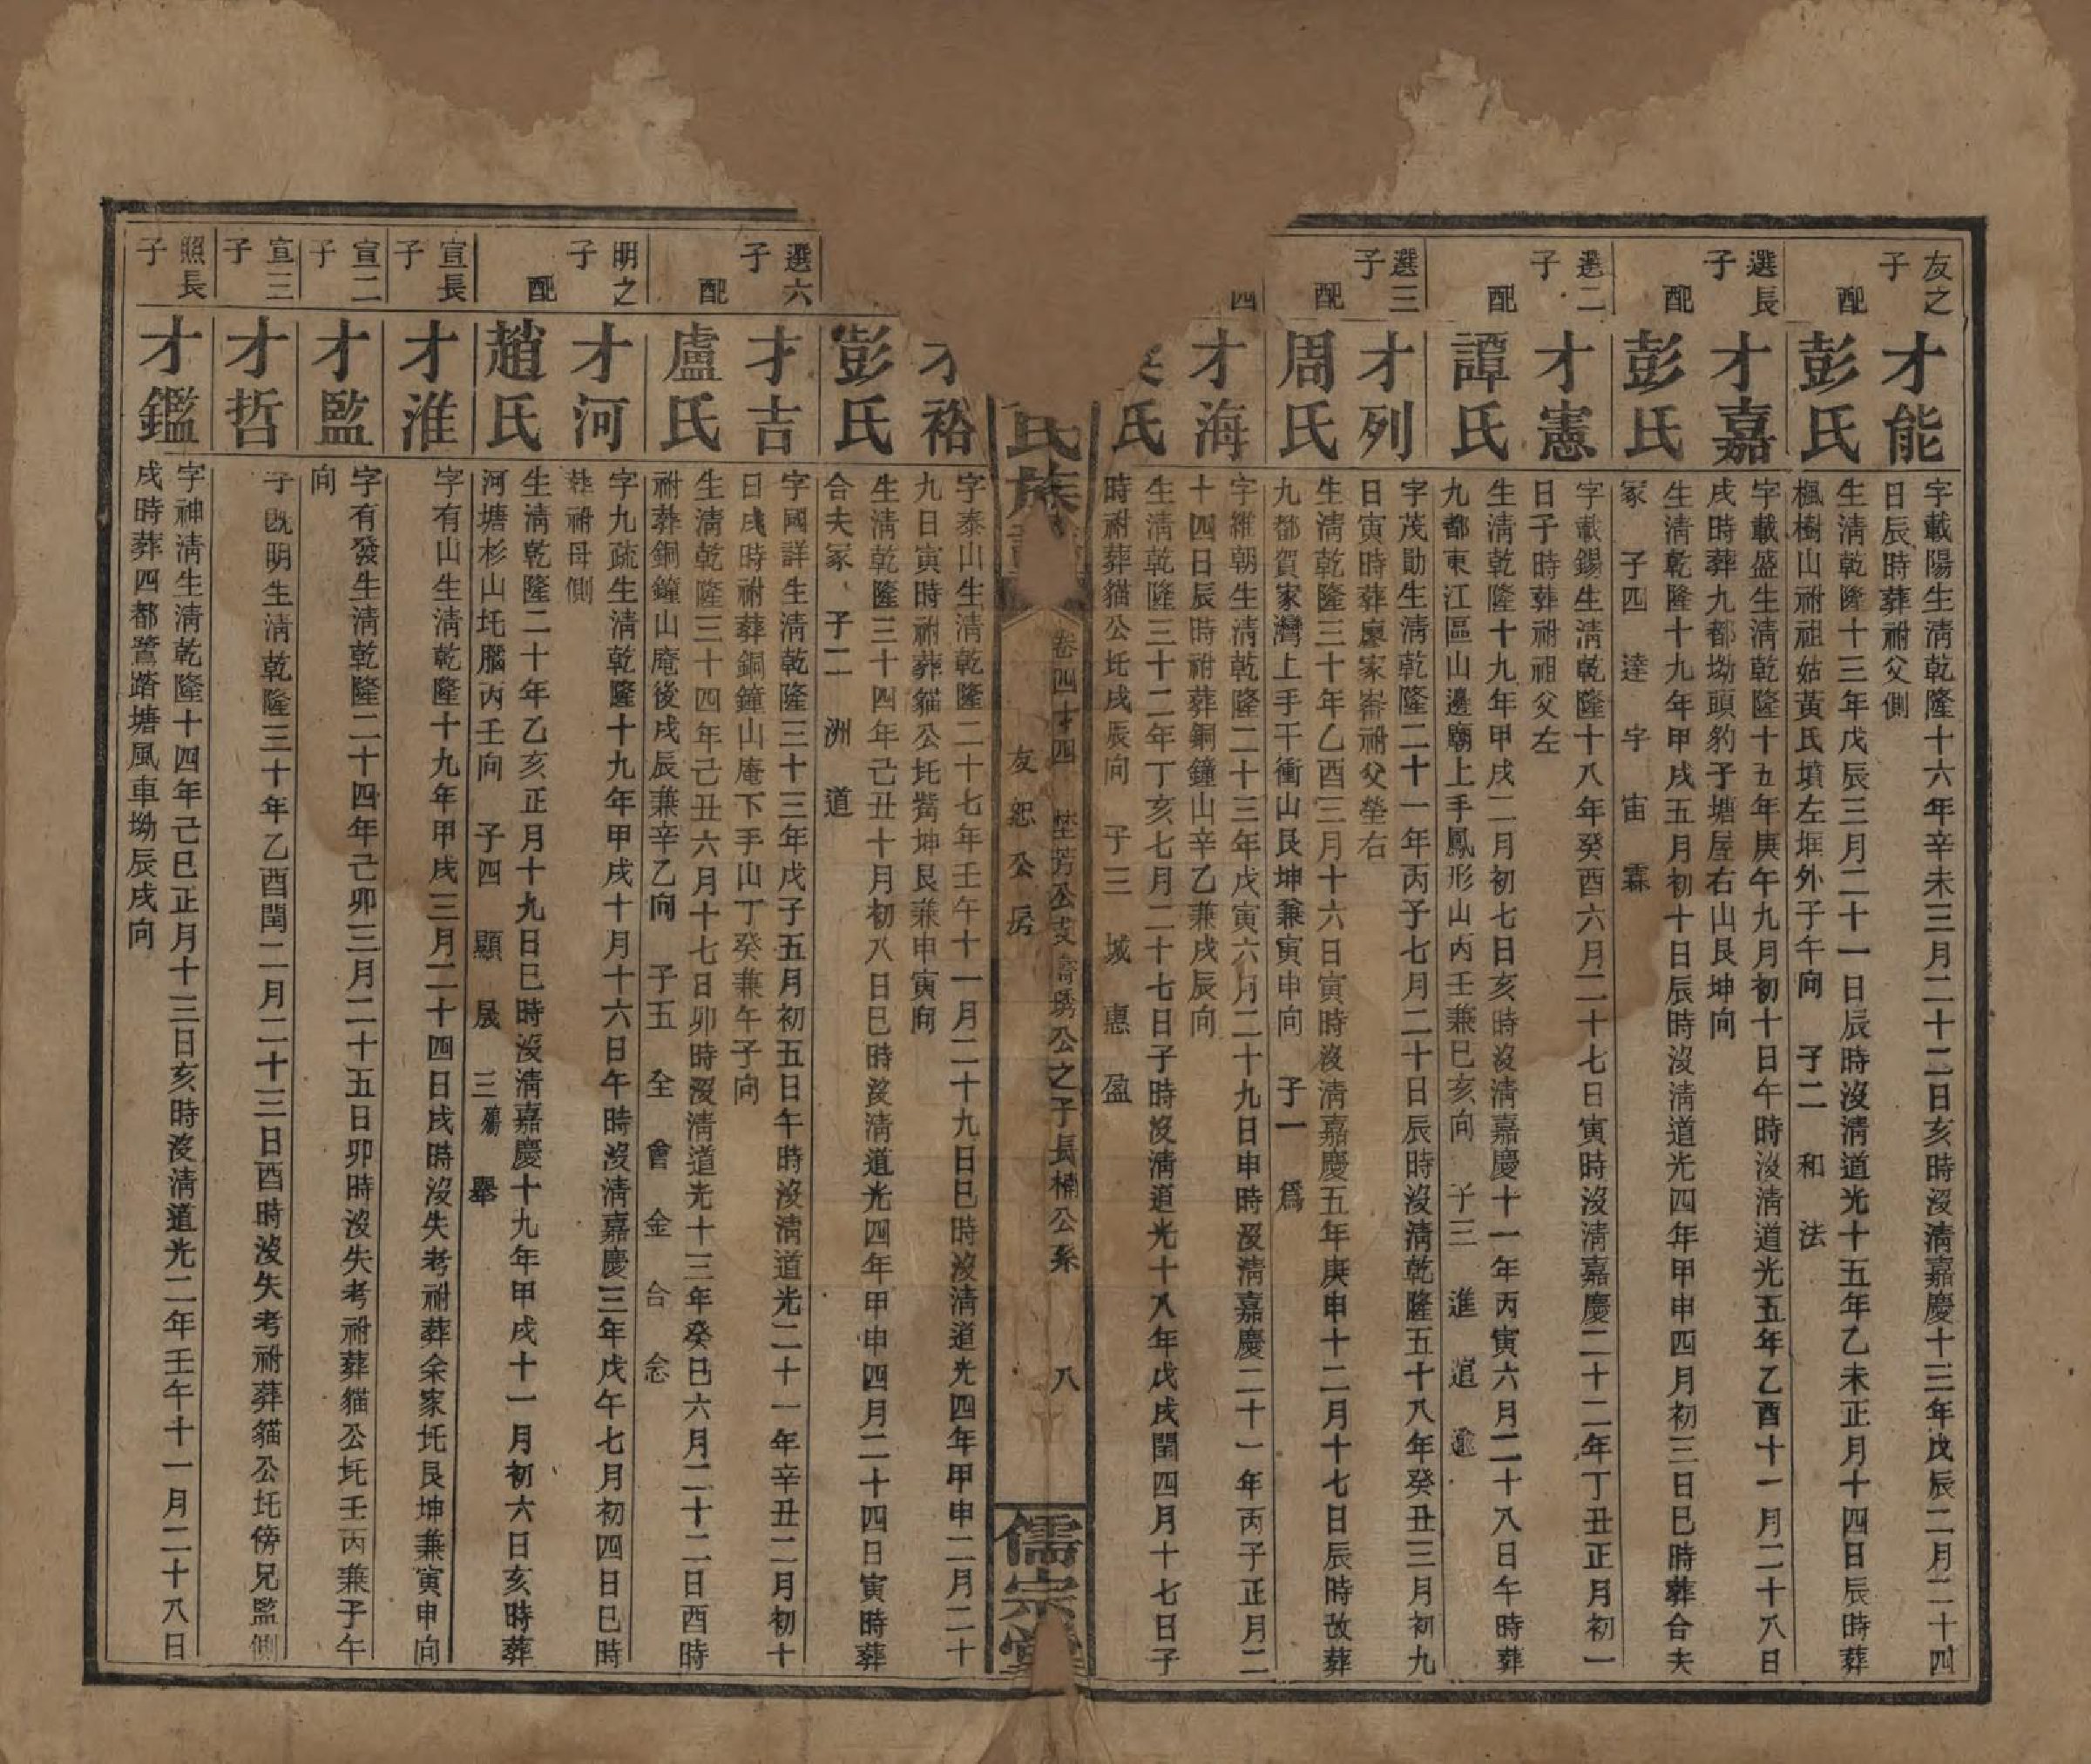 友之子
才能
字載陽生淸乾隆十六年辛未三月二十二日亥時沒淸嘉慶十三年戊辰二月二十四
日辰時葬祔父側
配
彭氏
生淸乾隆十三年戊辰三月二十一日辰時沒淸道光十五年乙未正月十四日辰時葬
楓樹山祔祖姑黃氏墳左堐外子午向 子二 和 法
選長子
才嘉
字載盛生淸乾隆十五年庚午九月初十日午時沒淸道光五年乙酉十一月二十八日
戌時葬九都坳頭豹子塘屋右山艮坤向
配
彭氏
生淸乾隆十九年甲戌五月初十日辰時沒淸道光四年甲申四月初三日巳時葬合夫
冢 子四 逹 宇 宙 霖
選二子
才憲
字載錫生淸乾隆十八年癸酉六月二十七日寅時沒淸嘉慶二十二年丁丑正月初一
日子時葬祔祖父左
配
譚氏
生淸乾隆十九年甲戌二月初七日亥時沒淸嘉慶十一年丙寅六月二十八日午時葬
九都東江區山邊廟上手鳳形山丙壬兼巳亥向 子三 進 逭 逾
選三子
才列
字茂勛生淸乾隆二十一年丙子七月二十日辰時沒淸乾隆五十八年癸丑三月初九
日寅時葬廖家崙祔父塋右
配
周氏
生淸乾隆三十年乙酉三月十六日寅時沒淸嘉慶五年庚申十二月十七日辰時改葬
九都賀家灣上手干衝山艮坤兼寅申向 子一 爲
四
才海
字維朝生淸乾隆二十三年戊寅六月二十九日申時沒淸嘉慶二十一年丙子正月二
十四日辰時祔葬銅鐘山辛乙兼戌辰向
氏
生淸乾隆三十二年丁亥七月二十七日子時沒淸道光十八年戊戌閏四月十七日子
時祔葬貓公圫戌辰向 子三 城 惠 盈
氏族
卷四才四 埜芳公支壽琇公之子長楠公系 八
友恕公房
儒宗堂
才裕
字泰山生淸乾隆二十七年壬午十一月二十九日巳時沒淸道光四年甲申二月二十
九日寅時祔葬貓公圫觜坤艮兼申寅向
彭氏
生淸乾隆三十四年己丑十月初八日巳時沒淸道光四年甲申四月二十四日寅時葬
合夫冢 子二 洲 道
選六子
才吉
字國詳生淸乾隆三十三年戊子五月初五日午時沒淸道光二十一年辛丑二月初十
日戌時祔葬銅鐘山庵下手山丁癸兼午子向
配
盧氏
生淸乾隆三十四年己丑六月十七日卯時沒淸道光十三年癸巳六月二十二日酉時
祔葬銅鐘山庵後戌辰兼辛乙向 子五 全 會 金 合 念
明之子
才河
字九疏生淸乾隆十九年甲戌十月十六日午時沒淸嘉慶三年戊午七月初四日巳時
葬祔母側
配
趙氏
生淸乾隆二十年乙亥正月十九日巳時沒淸嘉慶十九年甲戌十一月初六日亥時葬
河塘杉山圫腦丙壬向 子四 顯 晟 三殤 舉
宣長子
才淮
字有山生淸乾隆十九年甲戌三月二十四日戌時沒失考祔葬余家圫艮坤兼寅申向
宣二子
才監
字有發生淸乾隆二十四年己卯三月二十五日卯時沒失考祔葬貓公圫壬丙兼子午
向
宣三子
才哲
字既明生淸乾隆三十年乙酉閏二月二十三日酉時沒失考祔葬貓公圫傍兄監側
照長子
才鑑
字神淸生淸乾隆十四年己巳正月十三日亥時沒淸道光二年壬午十一月二十八日
戌時葬四都鷺踏塘風車坳辰戌向